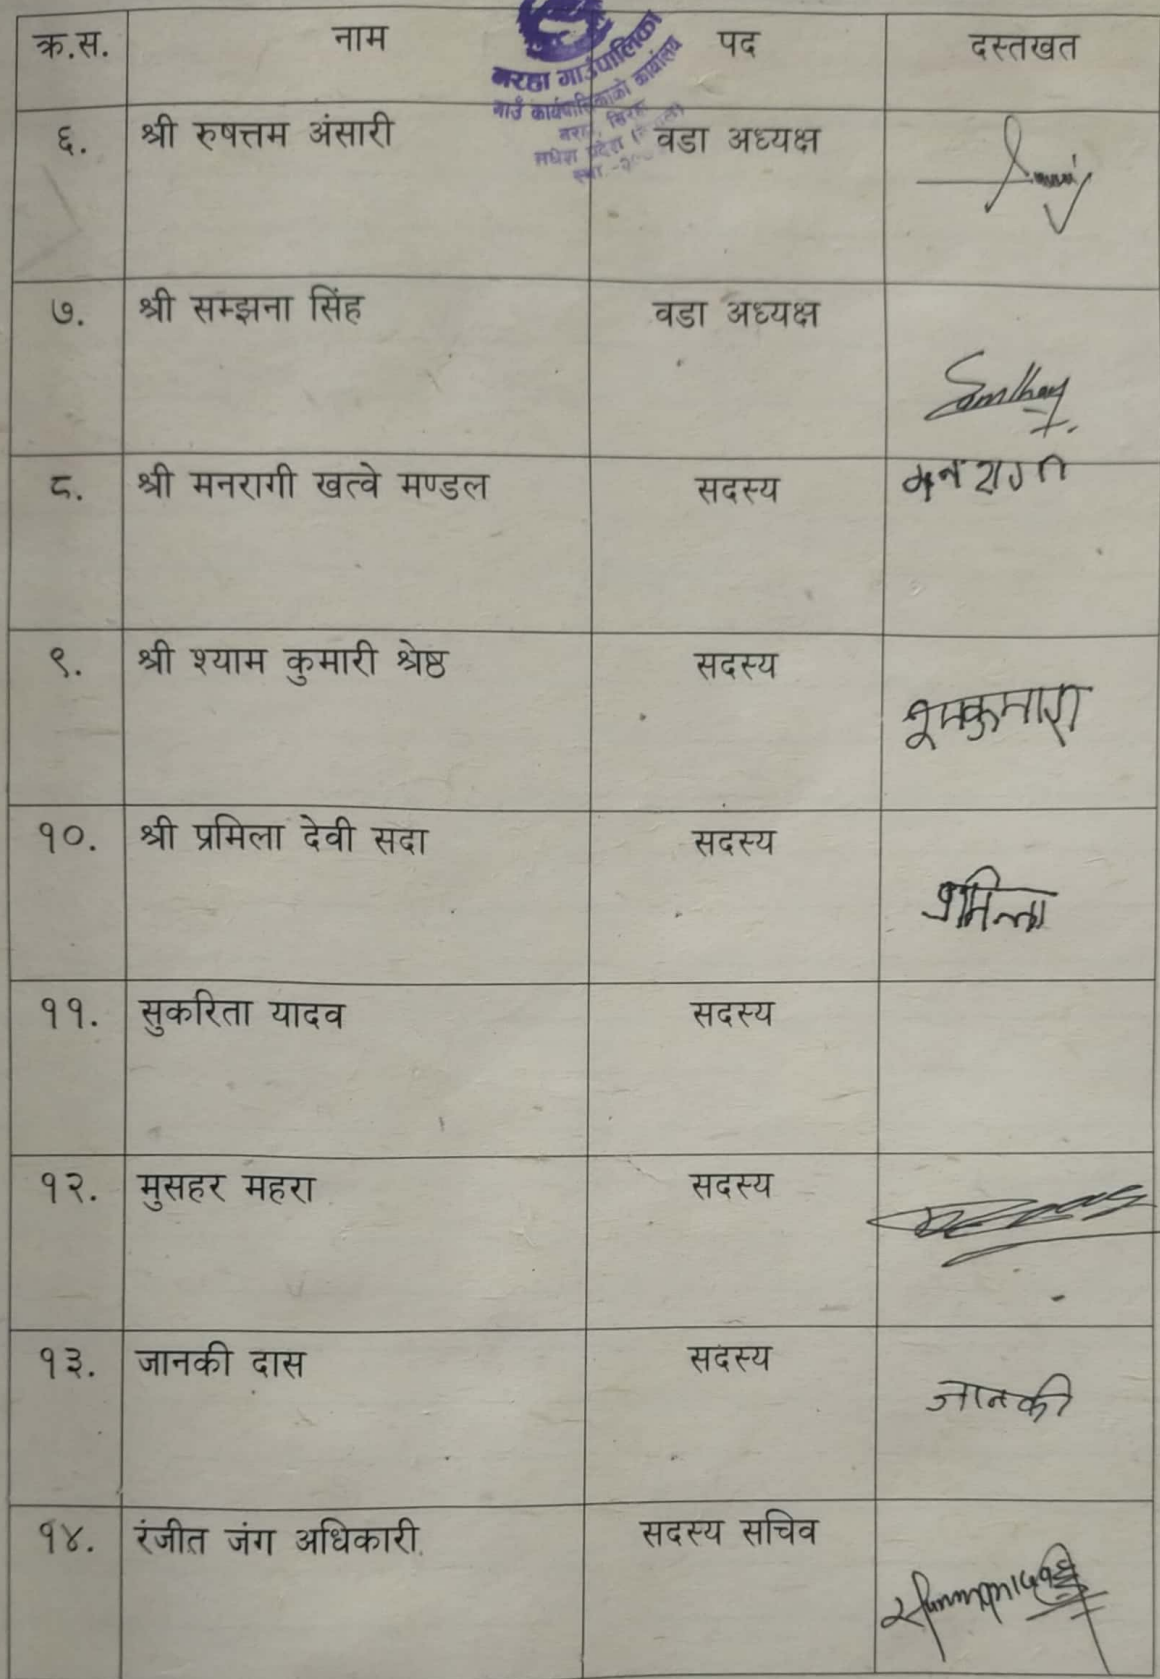 क्र.स. नाम पद दस्तखत
नरहा गाउँपालिका
गाउँ कार्यपालिकाको कार्यालय
६. श्री रुषत्तम अंसारी वडा अध्यक्ष
७. श्री सम्झना सिंह वडा अध्यक्ष
८. श्री मनरागी खत्वे मण्डल सदस्य मनरागी
९. श्री श्याम कुमारी श्रेष्ठ सदस्य
१०. श्री प्रमिला देवी सदा सदस्य प्रमिला
११. सुकरिता यादव सदस्य
१२. मुसहर महरा सदस्य
१३. जानकी दास सदस्य जानकी
१४. रंजीत जंग अधिकारी सदस्य सचिव